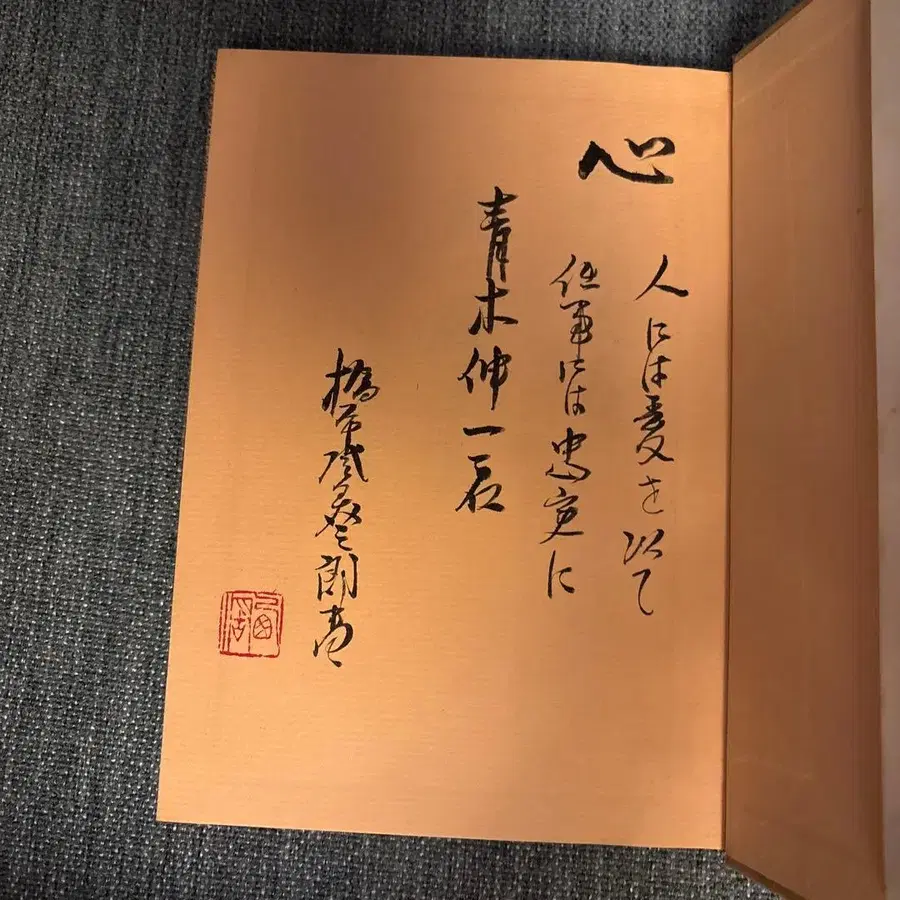 心
人には愛を以て
仕事には忠実に
青木伸一君
橋本
郎